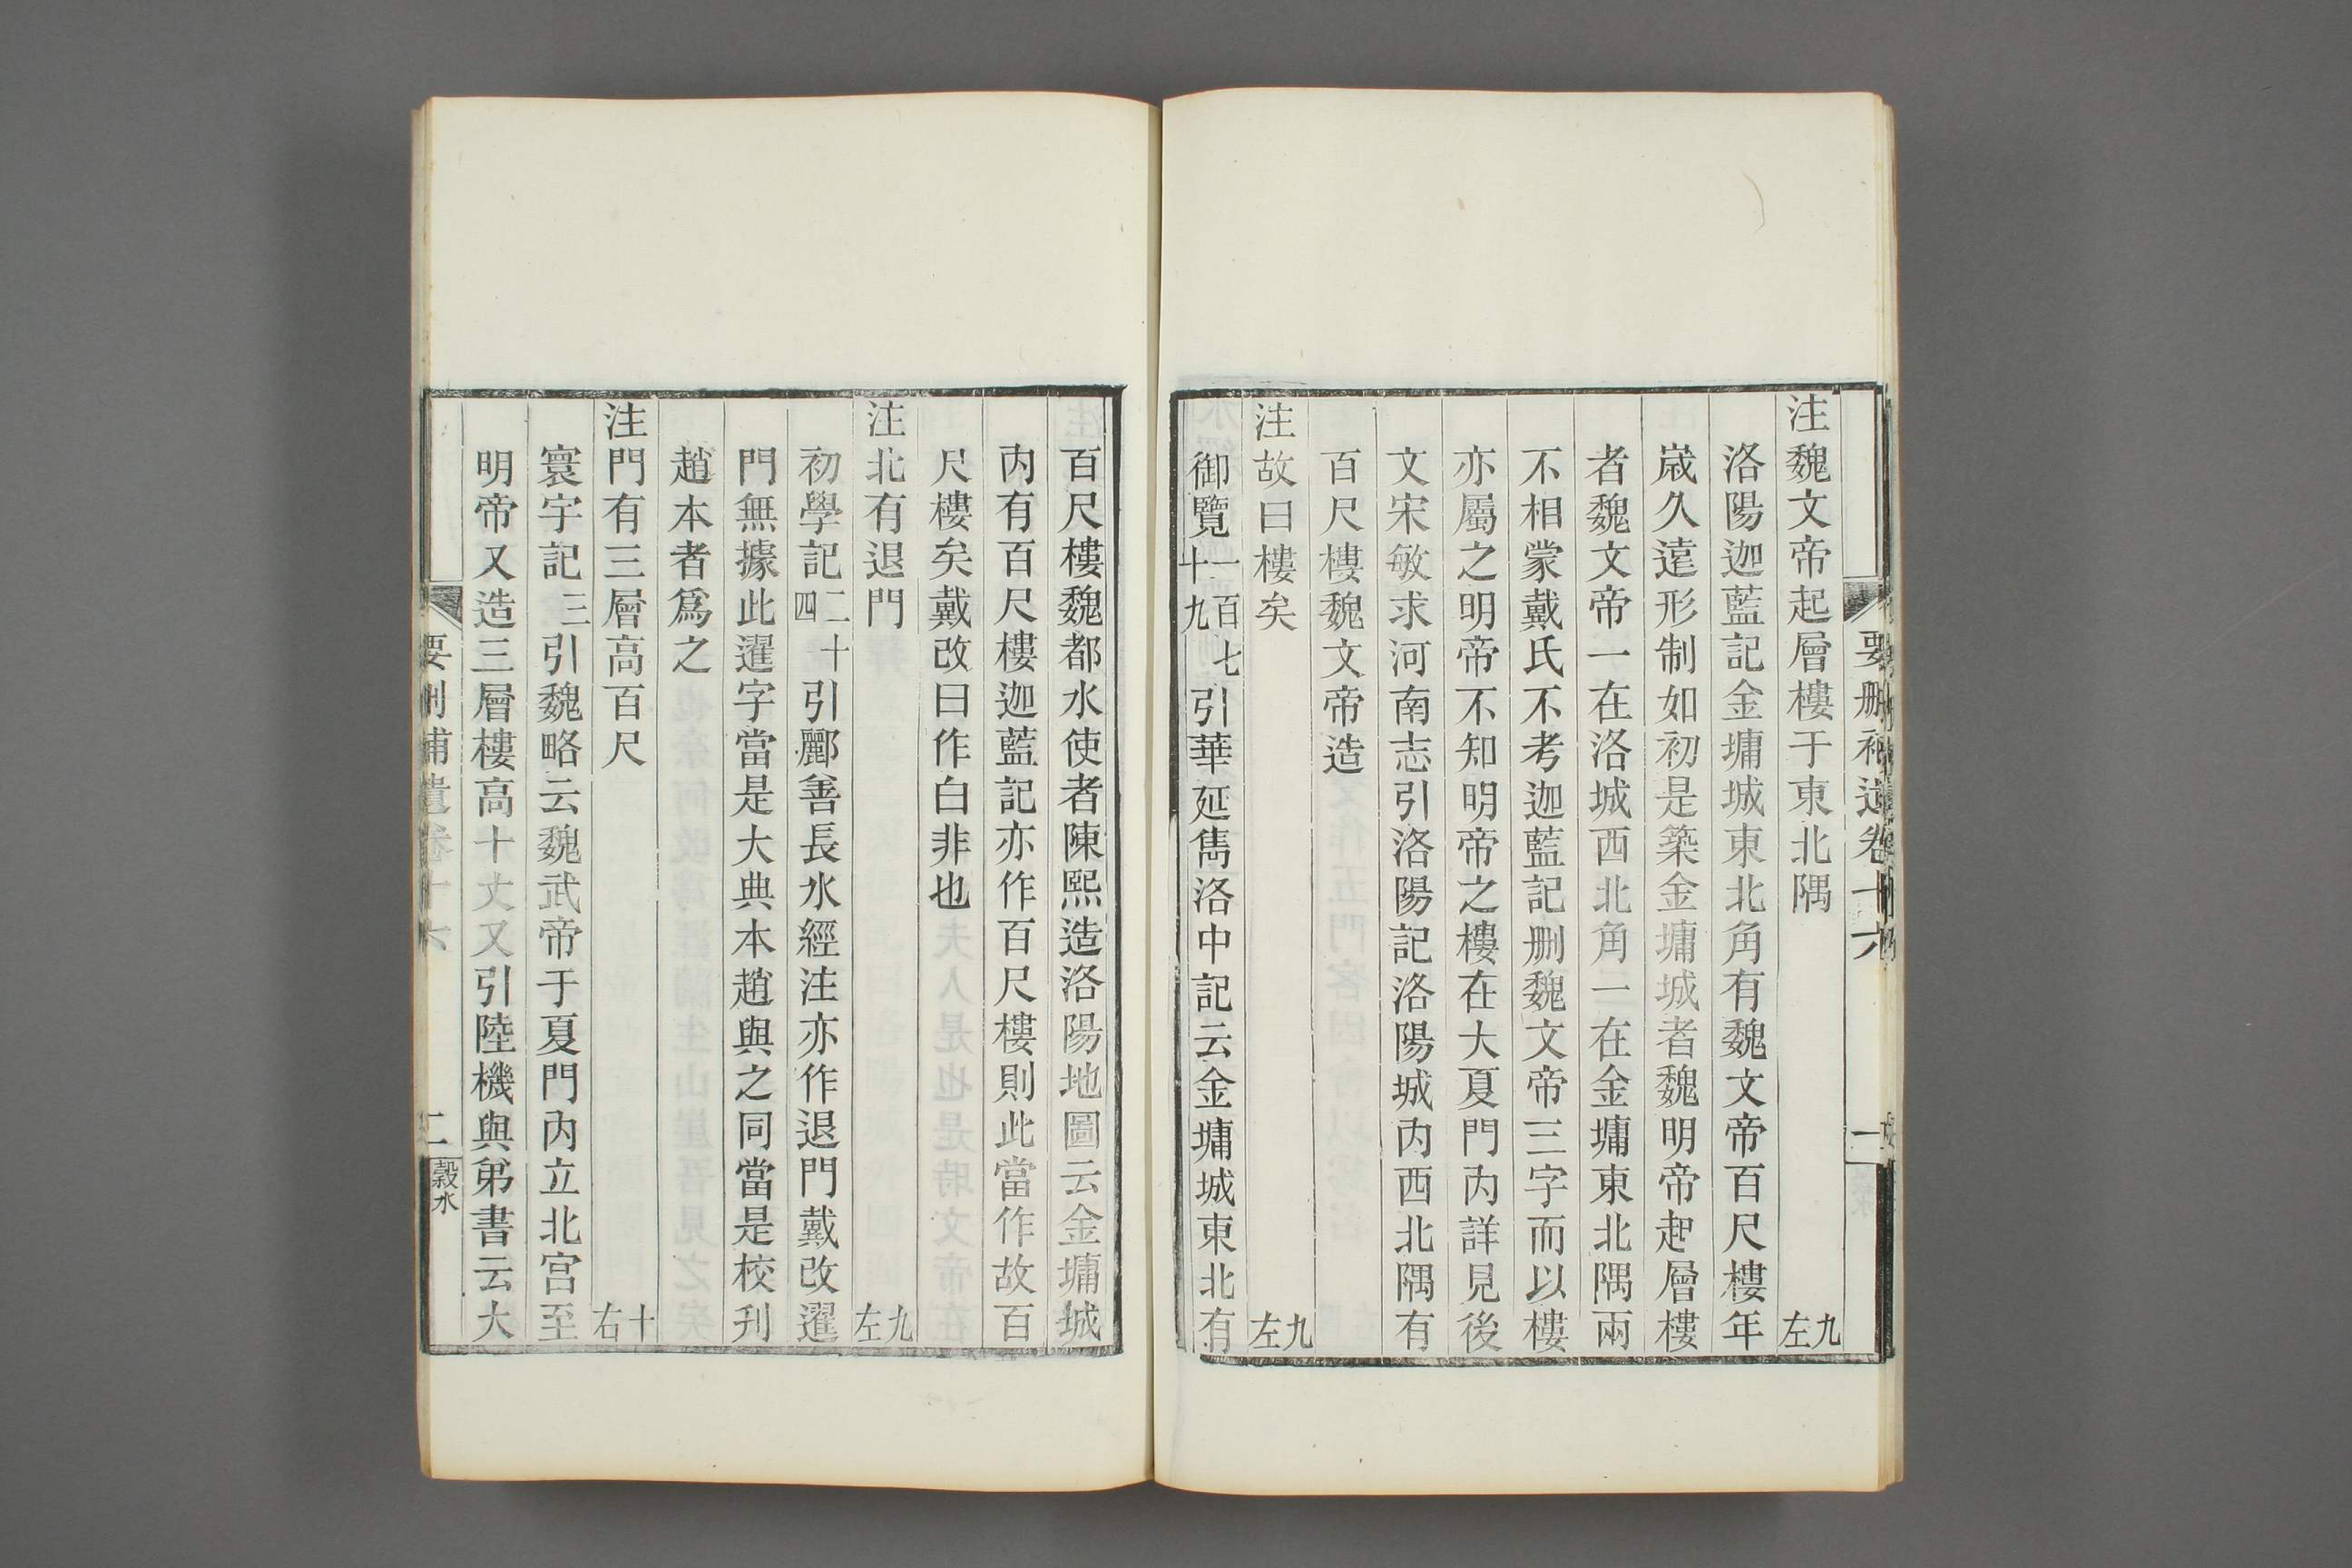 要删補遺卷十六 一
注魏文帝起層樓于東北隅 九左
洛陽迦藍記金墉城東北角有魏文帝百尺樓年
嵗久遠形制如初是築金墉城者魏明帝起層樓
者魏文帝一在洛城西北角一在金墉東北隅兩
不相蒙戴氏不考迦藍記删魏文帝三字而以樓
亦屬之明帝不知明帝之樓在大夏門内詳見後
文宋敏求河南志引洛陽記洛陽城内西北隅有
百尺樓魏文帝造
注故曰樓矣 九左
御覽一百七十九引華延雋洛中記云金墉城東北有
百尺樓魏都水使者陳熙造洛陽地圖云金墉城
内有百尺樓迦藍記亦作百尺樓則此當作故百
尺樓矣戴改曰作白非也
注北有退門 九左
初學記二十四引酈善長水經注亦作退門戴改暹
門無據此暹字當是大典本趙與之同當是校刋
趙本者爲之
注門有三層高百尺 十右
寰宇記三引魏略云魏武帝于夏門内立北宫至
明帝又造三層樓高十丈又引陸機與弟書云大
要删補遺卷十六 二 穀水